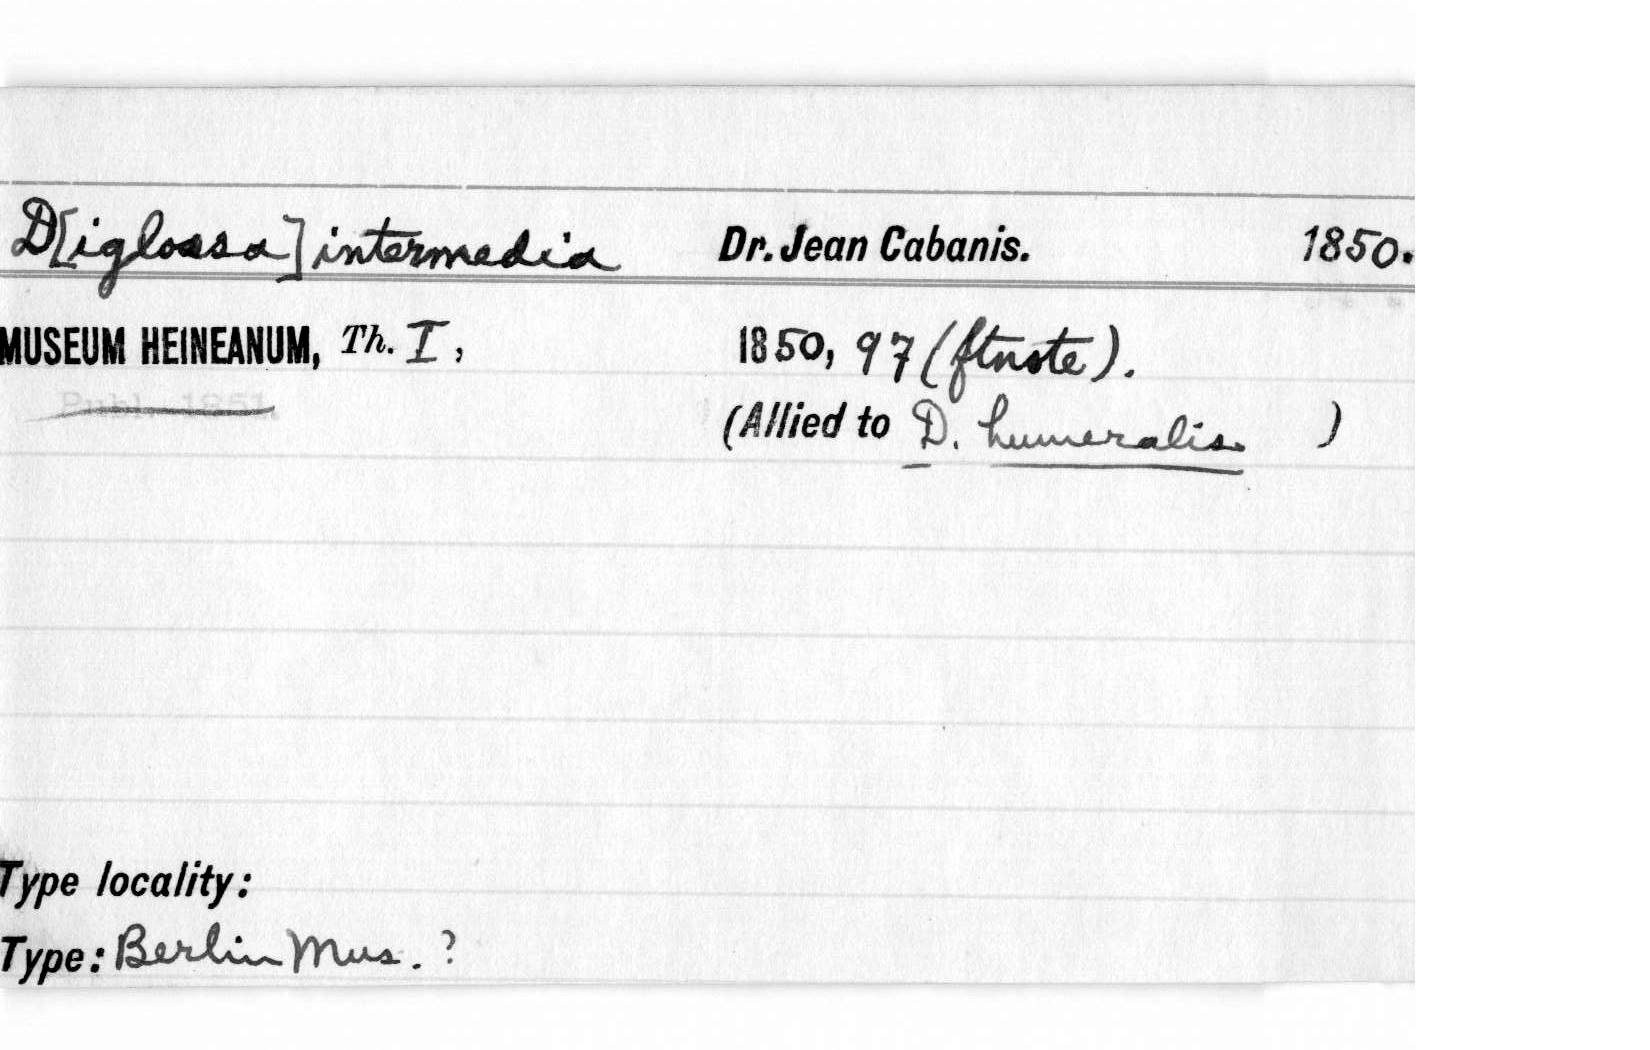 D[iglossa] intermedia Dr. Jean Cabanis. 1850.
MUSEUM HEINEANUM, Th. I, 1850, 97 (ftnote).
Publ. 1851.
(Allied to D. humeralis. )
Type locality:
Type: Berlin Mus. ?